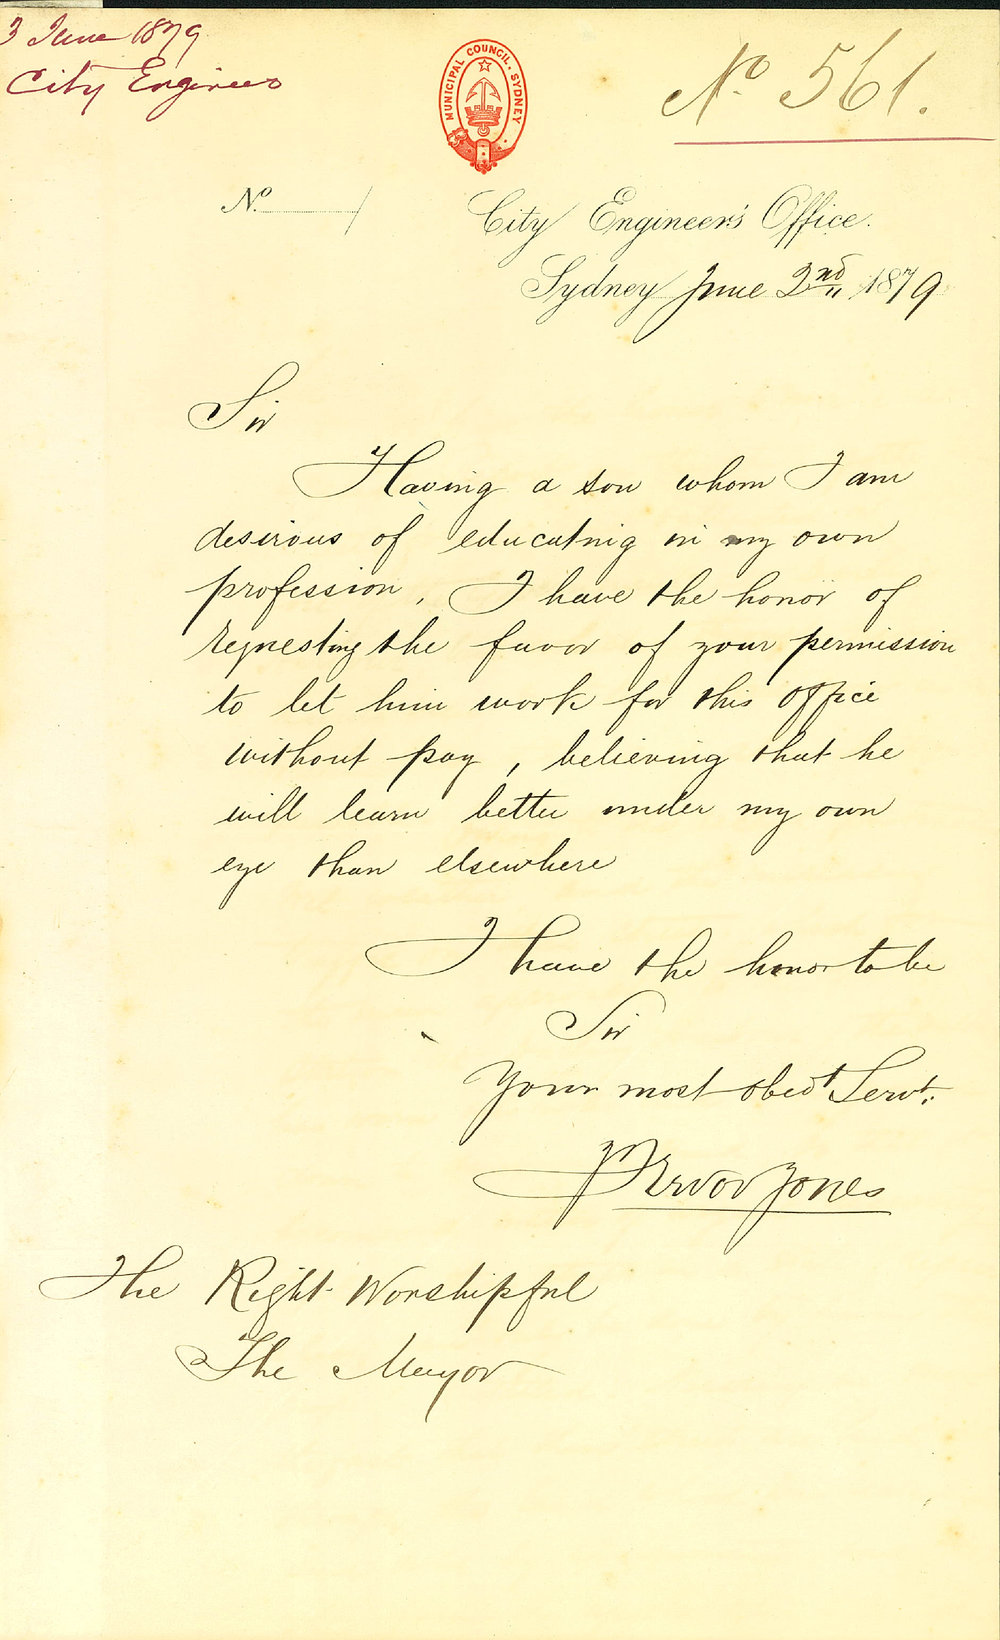 3 June 1879
City Engineer
MUNICIPAL COUNCIL. SYDNEY
No 561.
No. /
City Engineer's Office.
Sydney June 2nd 1879
Sir
Having a son whom I am
desirous of educating in my own
profession, I have the honor of
requesting the favor of your permission
to let him work for this office
without pay, believing that he
will learn better under my own
eye than elsewhere
I have the honor to be
Sir
Your most obedt Servt.
Trevor Jones
The Right Worshipful
The Mayor